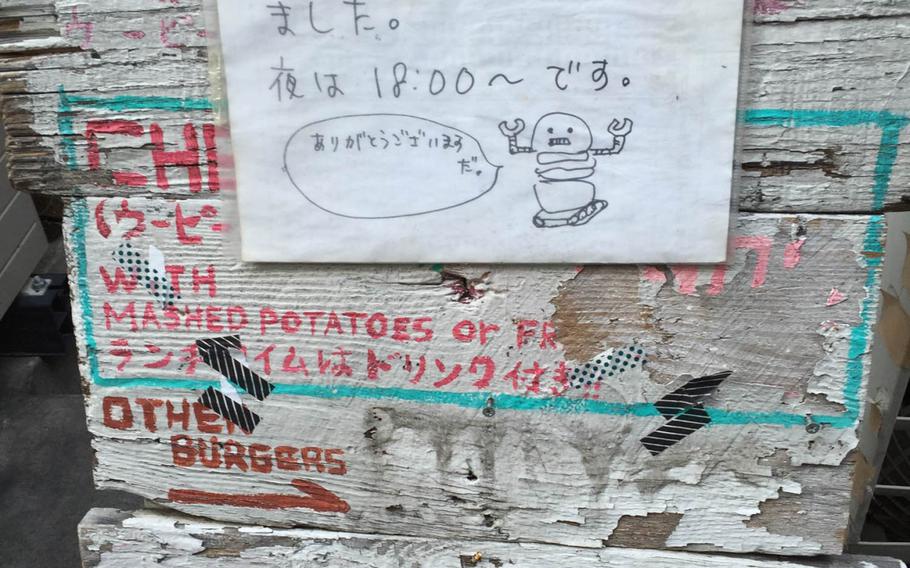 ました。
夜は 18:00～ です。
ありがとうございます
だ。
(ウーピー
WITH
MASHED POTATOES or FR
ランチタイムはドリンク付き!!
OTHER
BURGERS